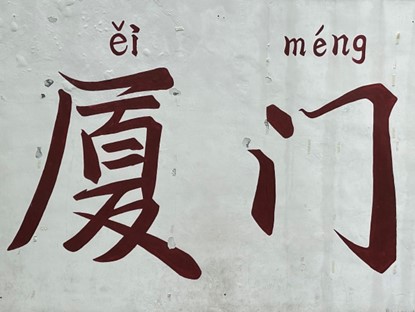 ěi méng
厦门